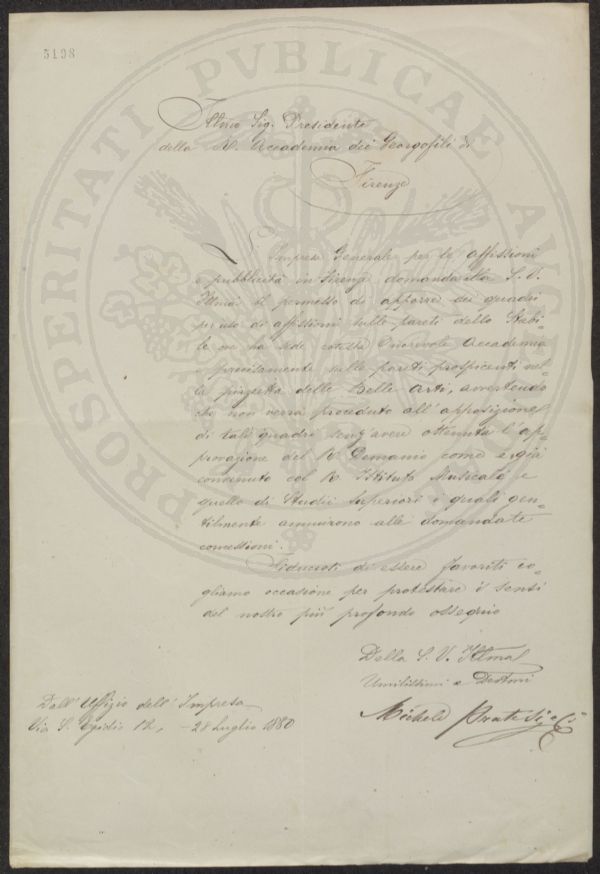 5198
PROSPERITATI PVBLICAE AVGENDAE
Illmo Sig. Presidente
della R. Accademia dei Georgofili di
Firenze
L'Impresa Generale per le affissioni
e pubblicità in Firenze domanda alla S. V.
Illma il permesso di apporre dei quadri
per uso di affissioni sulle pareti dello Stabi-
le ove ha sede cotesta Onorevole Accademia
e precisamente sulle pareti prospicenti nel-
la piazzetta delle Belle Arti, avvertendo
che non verrà proceduto all'apposizione
di tali quadri senz'avere ottenuta l'ap-
provazione del R. Demanio come è già
convenuto col R. Istituto Musicale e
quello di Studii Superiori i quali gen-
tilmente annuirono alle domandate
concessioni.
Fiduciosi di essere favoriti co-
gliamo occasione per protestare i sensi
del nostro più profondo ossequio
Della S. V. Illma
Umilissimi e Devmi
Michele Pratesi e C.
Dall'Uffizio dell'Impresa
Via S. Egidio 12, - 28 Luglio 1880